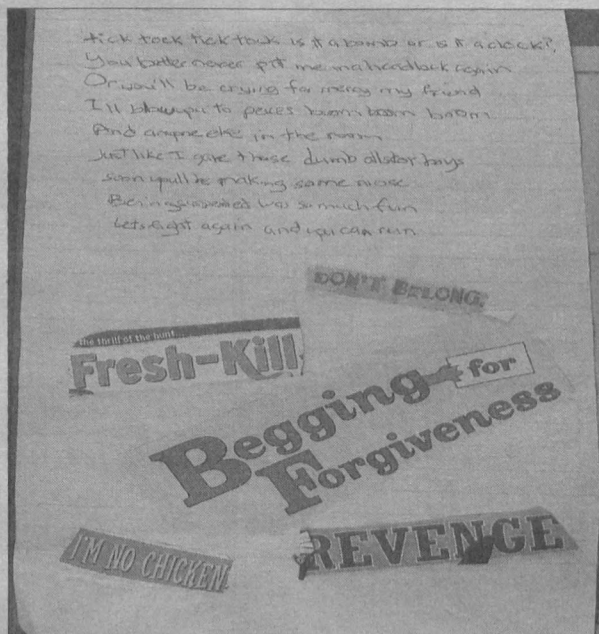 tick tock tick tock is it a bomb or is it a clock?,
You better never put me in a headlock again
Or you'll be crying for mercy my friend
I'll blow you to peices boom boom boom
And anyone else in the room
Just like I gave those dumb allstar boys
soon you'll be making some noise
Being was so much fun
Lets fight again and you can run
DON'T BELONG.
the thrill of the hunt
Fresh-Kill
Begging for
Forgiveness
I'M NO CHICKEN.
REVENGE